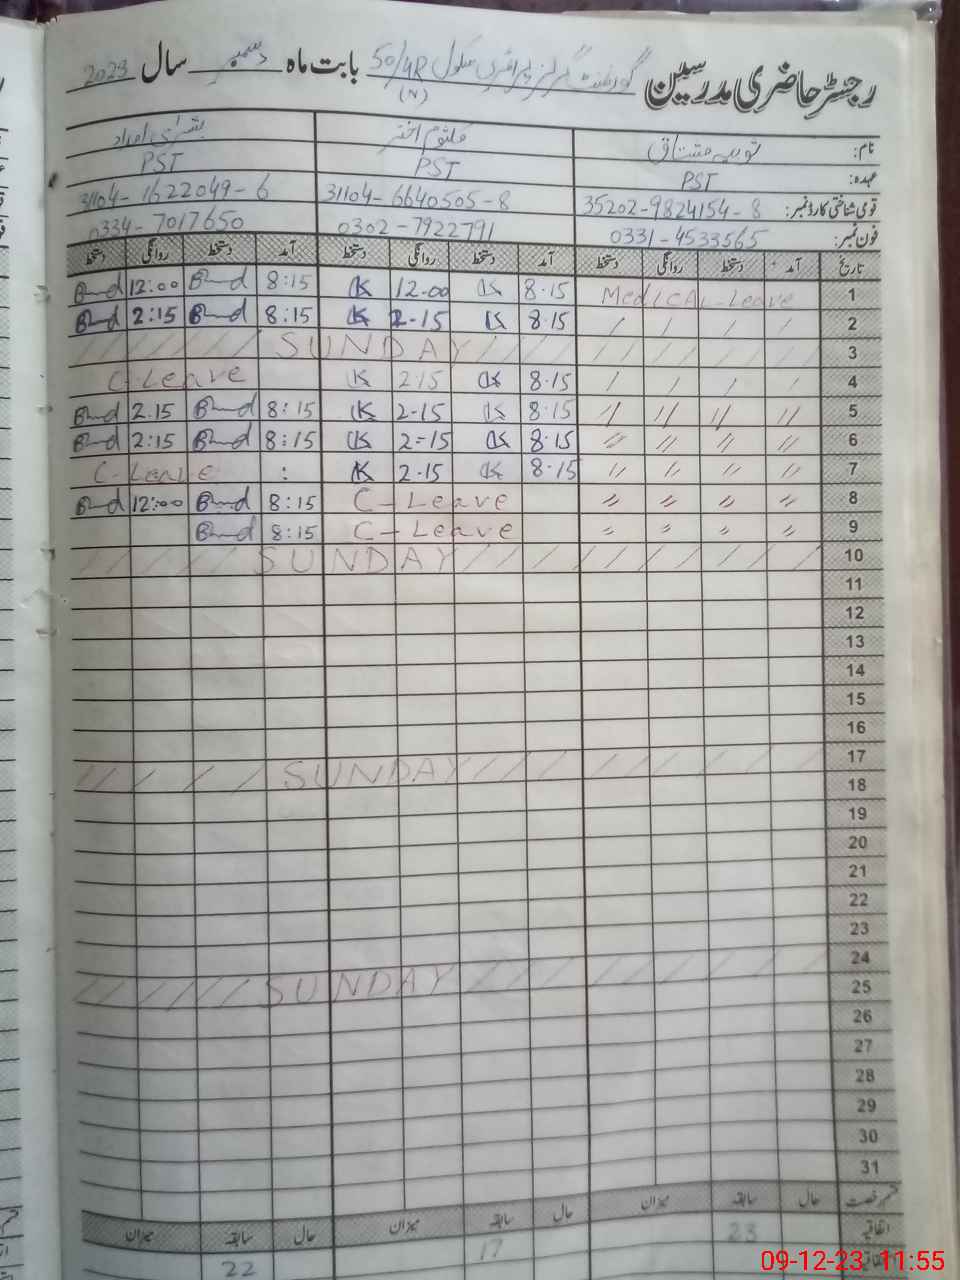 رجسٹر حاضری مدرسین گورنمنٹ گرلز پرائمری سکول 50/4R بابت ماہ دسمبر سال 2023
(N)
نام: ثوبیہ مشتاق کلثوم اختر بشریٰ امداد
عہدہ: PST PST PST
قومی شناختی کارڈ نمبر: 35202-9824154-8 31104-6640505-8 31104-1622049-6
فون نمبر: 0331-4533565 0302-7922791 0334-7017650
تاریخ آمد دستخط روانگی دستخط آمد دستخط روانگی دستخط آمد دستخط روانگی دستخط
1 Medical Leave 8.15 K 12.00 K 8:15 12:00
2 / / / / 8.15 K 2-15 K 8:15 2:15
3 / / / / SUNDAY
4 / / / / 8.15 K 2.15 K C-Leave
5 // // // // 8.15 K 2-15 K 8:15 2.15
6 // // // // 8.15 K 2=15 K 8:15 2:15
7 // // // // 8.15 K 2.15 K : C-Leave
8 // // // // C-Leave 8:15 12:00
9 // // // // C-Leave 8:15
10 SUNDAY
11
12
13
14
15
16
17 SUNDAY
18
19
20
21
22
23
24 SUNDAY
25
26
27
28
29
30
31
قسم رخصت حال سابقہ میزان حال سابقہ میزان حال سابقہ میزان
اتفاقیہ 23 17 22
09-12-23 11:55